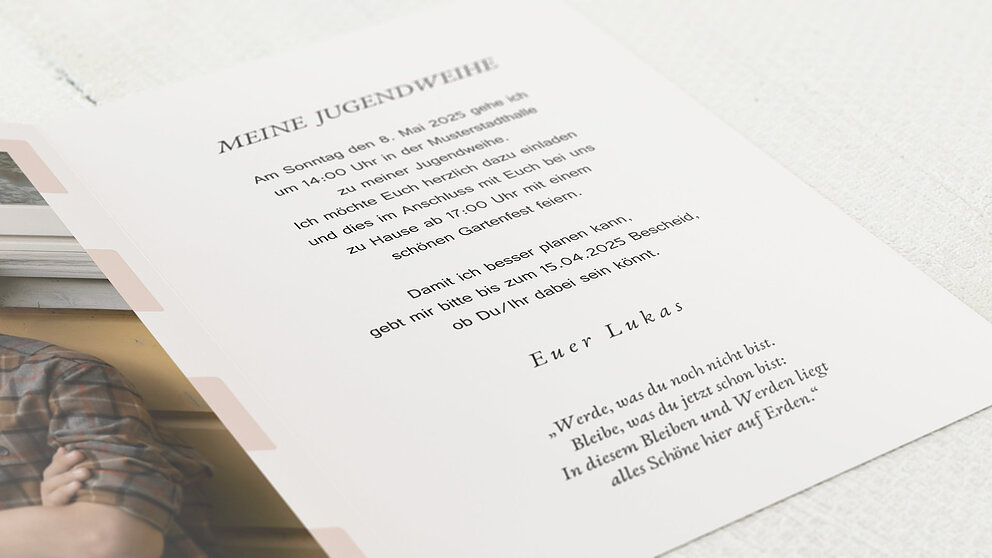 MEINE JUGENDWEIHE
Am Sonntag den 8. Mai 2025 gehe ich
um 14:00 Uhr in der Musterstadthalle
zu meiner Jugendweihe.
Ich möchte Euch herzlich dazu einladen
und dies im Anschluss mit Euch bei uns
zu Hause ab 17:00 Uhr mit einem
schönen Gartenfest feiern.
Damit ich besser planen kann,
gebt mir bitte bis zum 15.04.2025 Bescheid,
ob Du/Ihr dabei sein könnt.
Euer Lukas
„Werde, was du noch nicht bist.
Bleibe, was du jetzt schon bist:
In diesem Bleiben und Werden liegt
alles Schöne hier auf Erden.“